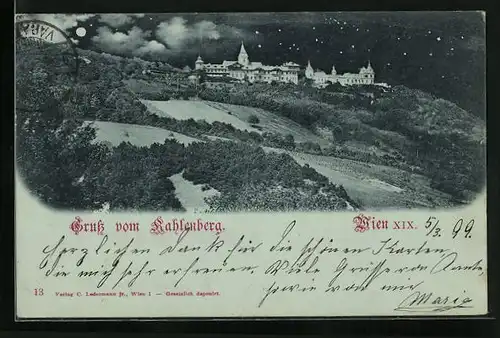 VARA
Gruß vom Kahlenberg. Wien XIX. 5/3. 99.
Herzlichen Dank für die schönen Karten,
die mich sehr erfreuen. Viele Grüsse von Tante,
sowie von mir
Marie
13 Verlag C. Ledermann jr., Wien I — Gesetzlich deponirt.